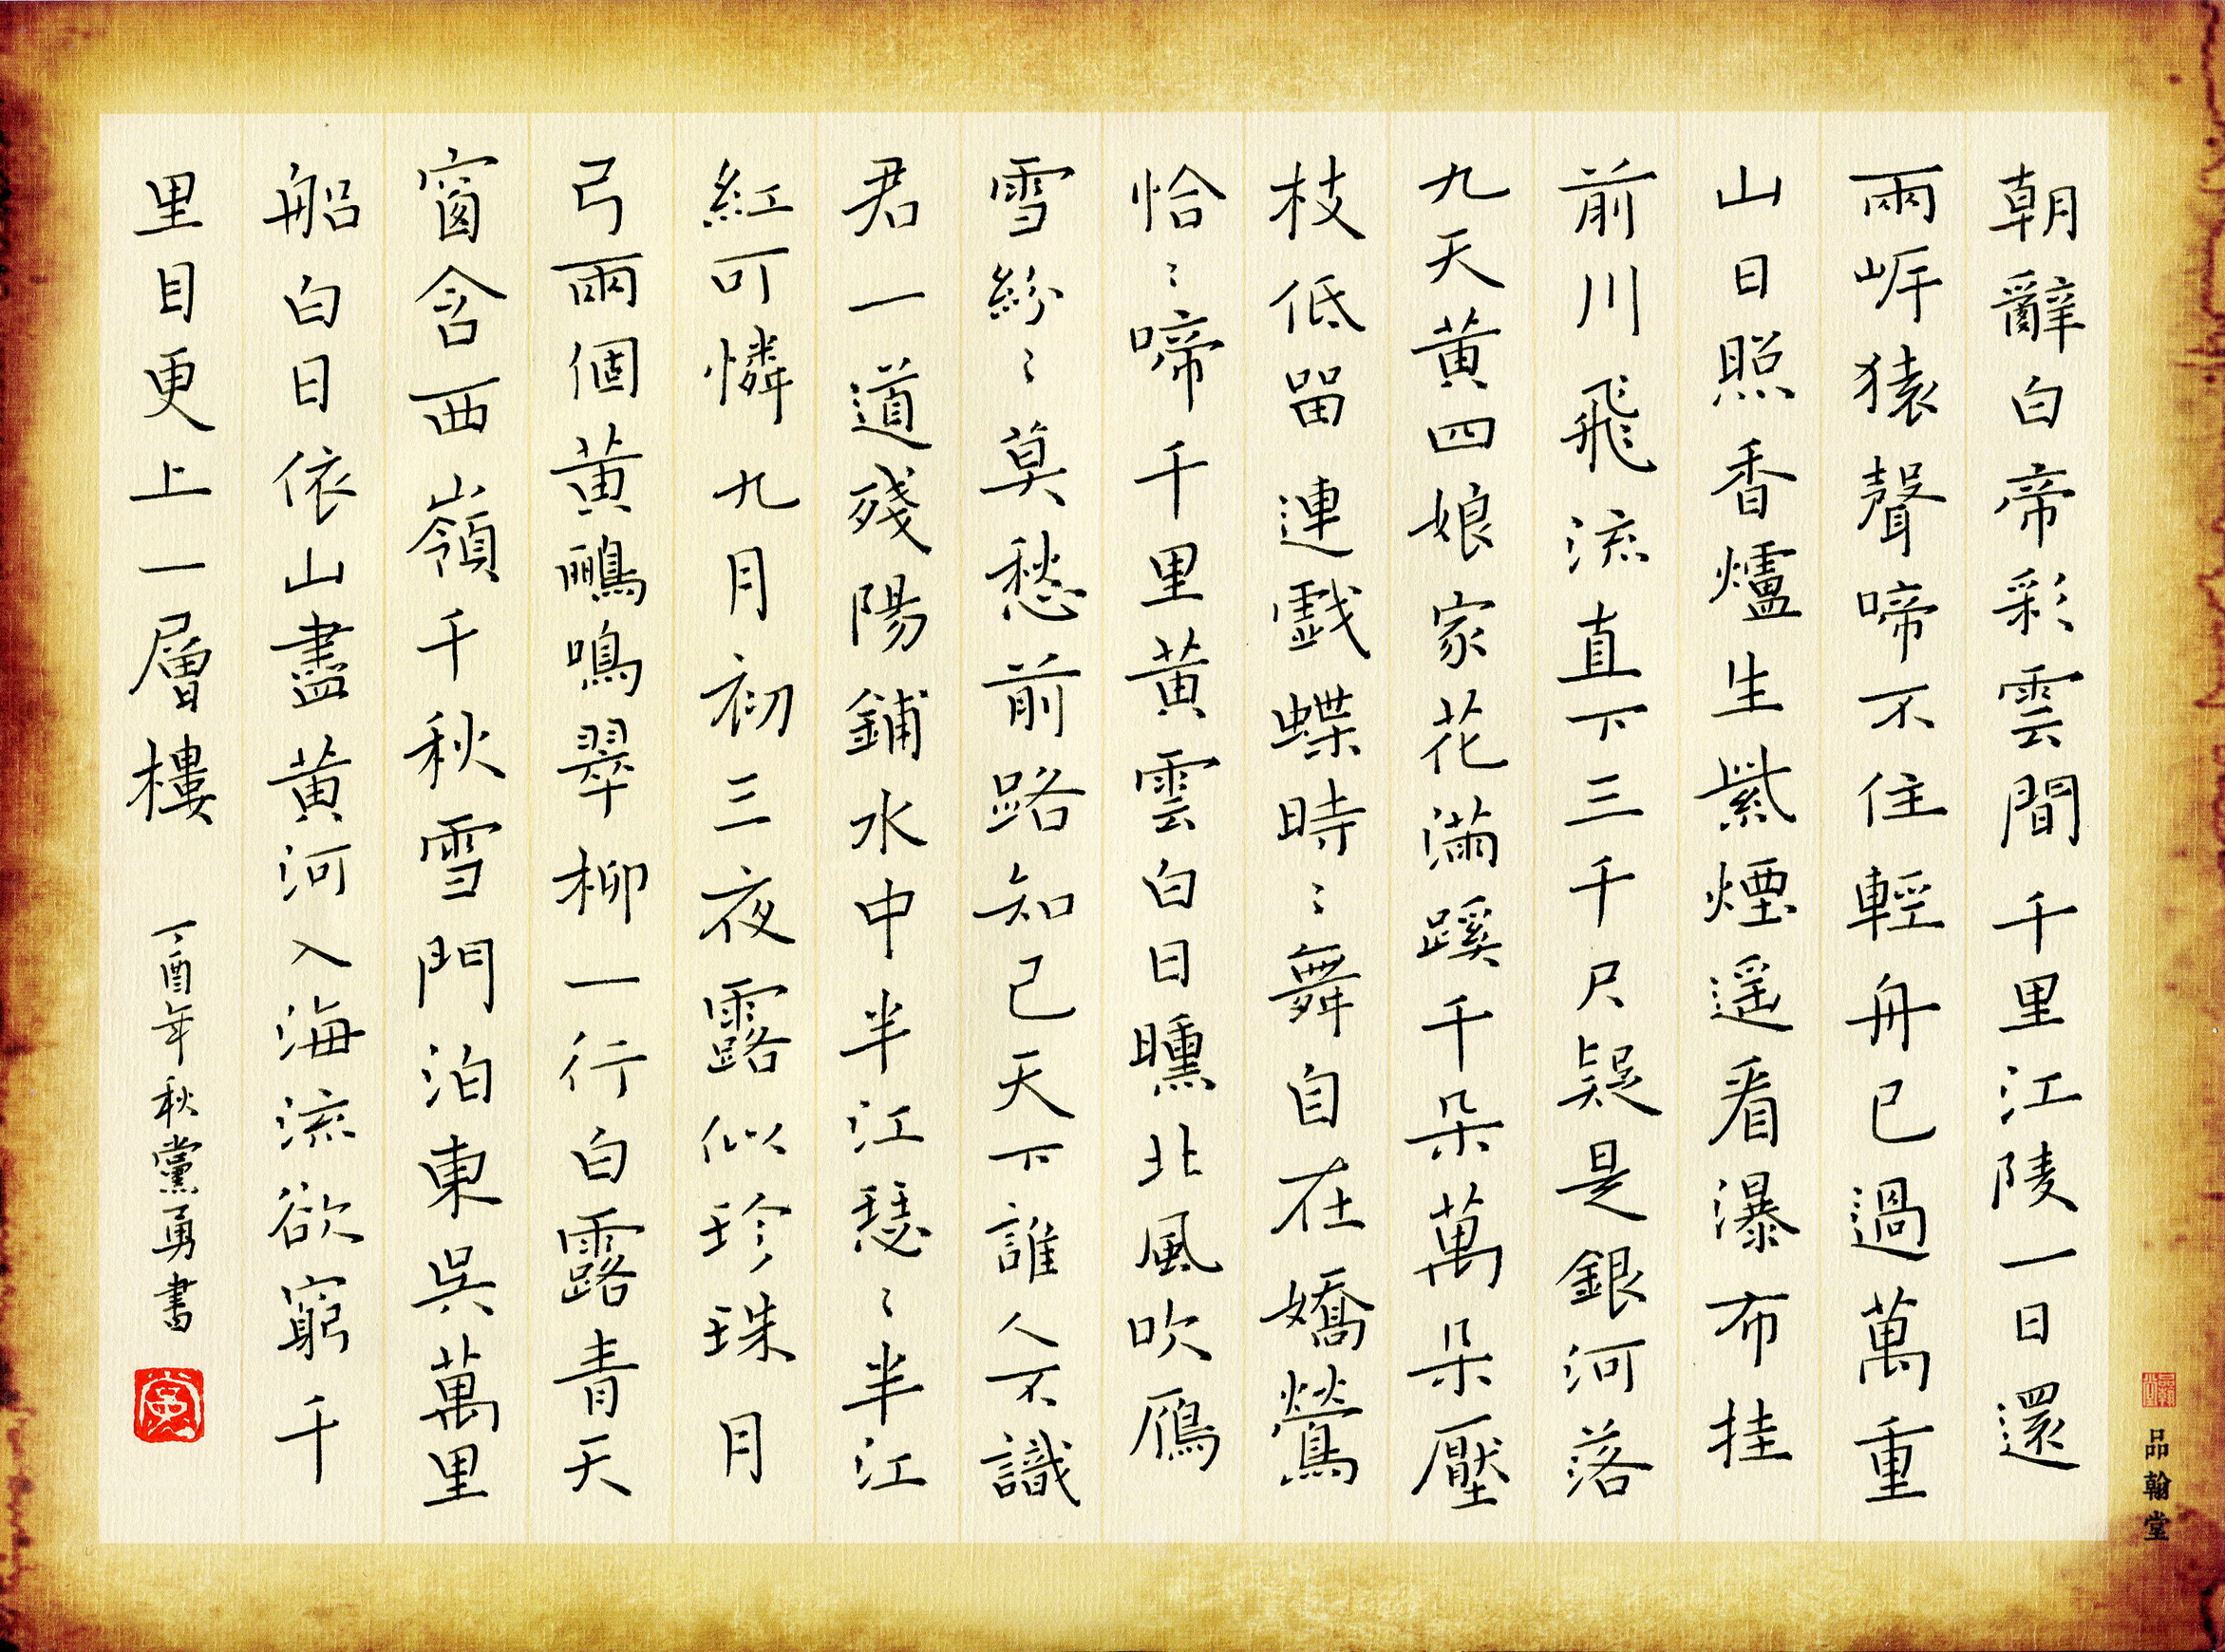 朝辭白帝彩雲間千里江陵一日還
兩岸猿聲啼不住輕舟已過萬重
山日照香爐生紫煙遥看瀑布挂
前川飛流直下三千尺疑是銀河落
九天黄四娘家花滿蹊千朵萬朵壓
枝低留連戲蝶時〻舞自在嬌鶯
恰〻啼千里黄雲白日曛北風吹鴈
雪紛〻莫愁前路知己天下誰人不識
君一道殘陽鋪水中半江瑟〻半江
紅可憐九月初三夜露似珍珠月
弓兩個黄鸝鳴翠柳一行白露青天
窗含西嶺千秋雪門泊東吳萬里
船白日依山盡黄河入海流欲窮千
里目更上一層樓
丁酉年秋黨勇書
品翰堂